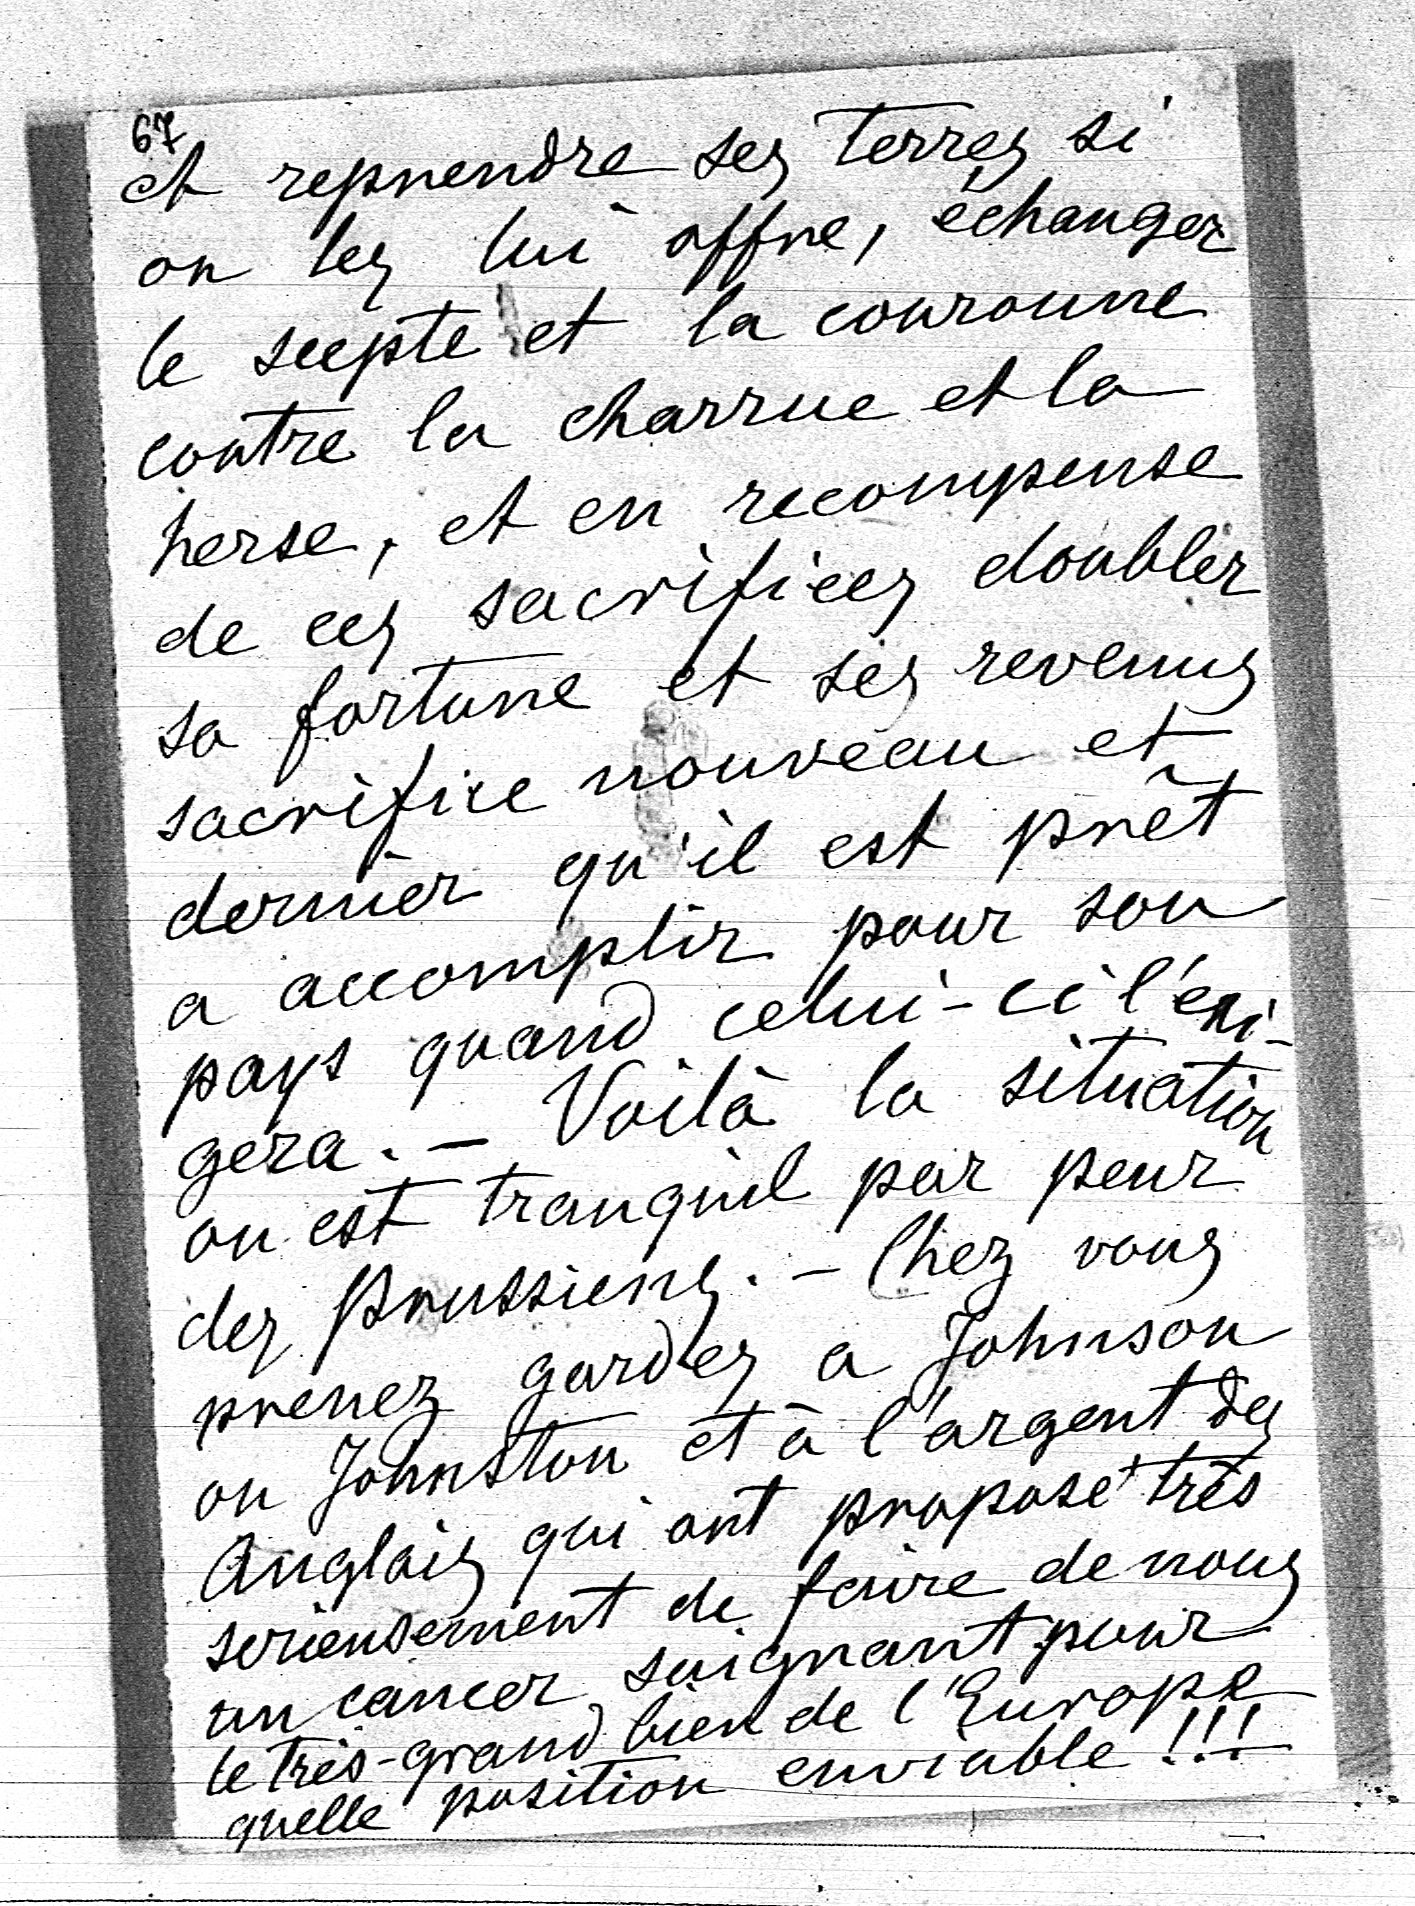 67
et reprendre ses terres si
on les lui offre, échanger
le scepte et la couronne
contre la charrue et la
herse, et en recompense
de ces sacrifices doubler
sa fortune et ses revenus
sacrifice nouveau et
dernier qu'il est prêt
a accomplir pour son
pays quand celui-ci l'exi-
gera. — Voilà la situation
on est tranquil par peur
des Prussiens. — Chez vous
prenez gardes a Johnson
ou Johnston et à l'argent des
Anglais qui ont proposé très
serieusement de faire de nous
un cancer saignant pour
le très-grand bien de l'Europe
quelle position enviable !!!